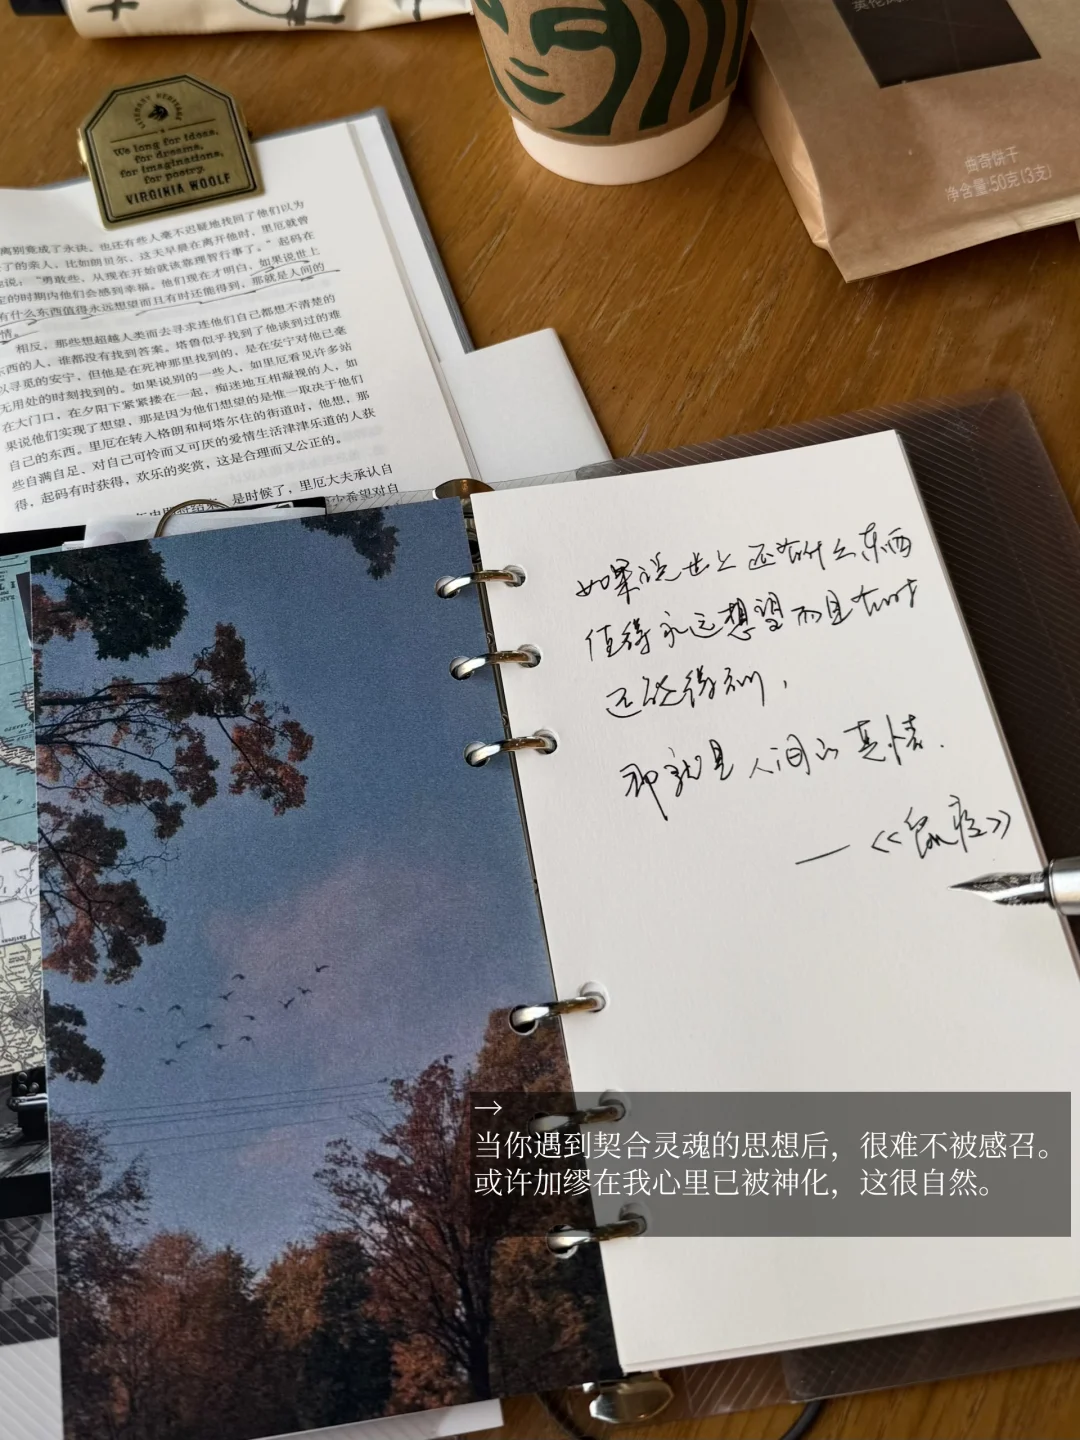 英伦
曲奇饼干
净含量:50克(3支)
LITERARY HERITAGE
We long for ideas,
for dreams,
for imaginations,
for poetry.
VIRGINIA WOOLF
离别竟成了永诀。也还有些人毫不迟疑地找回了他们以为
了的亲人，比如朗贝尔，这天早晨在离开他时，里厄就曾
说：“勇敢些，从现在开始就该靠理智行事了。”起码在
定的时期内他们会感到幸福。他们现在才明白，如果说世上
有什么东西值得永远想望而且有时还能得到，那就是人间的
情。
相反，那些想超越人类而去寻求连他们自己都想不清楚的
东西的人，谁都没有找到答案。塔鲁似乎找到了他谈到过的难
以寻觅的安宁，但他是在死神那里找到的，是在安宁对他已毫
无用处的时刻找到的。如果说别的一些人，如里厄看见许多站
在大门口，在夕阳下紧紧搂在一起，痴迷地互相凝视的人，如
果说他们实现了想望，那是因为他们想望的是惟一取决于他们
自己的东西。里厄在转入格朗和柯塔尔住的街道时，他想，那
些自满自足、对自己可怜而又可厌的爱情生活津津乐道的人获
得，起码有时获得，欢乐的奖赏，这是合理而又公正的。
是时候了，里厄大夫承认自
少希望对自
如果说世上还有什么东西
值得永远想望而且有时
还能得到，
那就是人间的真情.
—《鼠疫》
→
当你遇到契合灵魂的思想后，很难不被感召。
或许加缪在我心里已被神化，这很自然。